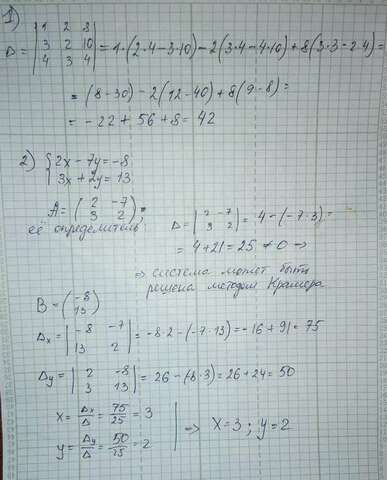 1)
Δ = | 1 2 8 |
| 3 2 10 |
| 4 3 4 | = 1·(2·4-3·10)-2(3·4-4·10)+8(3·3-2·4)=
= (8-30)-2(12-40)+8(9-8)=
= -22+56+8=42
2) { 2x-7y=-8
3x+2y=13
A= ( 2 -7
3 2 );
её определитель Δ= | 2 -7
3 2 | = 4-(-7·3)=
= 4+21=25≠0 →
⇒ система может быть
решена методом Крамера
B = ( -8
13 )
Δx = | -8 -7
13 2 | = -8·2-(-7·13)=-16+91=75
Δy = | 2 -8
3 13 | = 26-(-8·3)=26+24=50
x = Δx/Δ = 75/25 = 3
y = Δy/Δ = 50/25 = 2
⇒ x=3; y=2